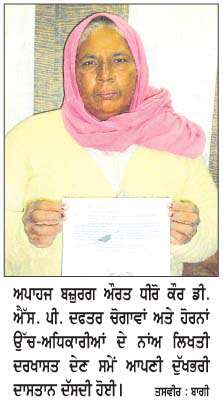 ਅਪਾਹਜ ਬਜ਼ੁਰਗ ਔਰਤ ਧੀਰੋ ਕੌਰ ਡੀ.
ਐੱਸ. ਪੀ. ਦਫਤਰ ਚੋਗਾਵਾਂ ਅਤੇ ਹੋਰਨਾਂ
ਉੱਚ-ਅਧਿਕਾਰੀਆਂ ਦੇ ਨਾਂਅ ਲਿਖਤੀ
ਦਰਖਾਸਤ ਦੇਣ ਸਮੇਂ ਆਪਣੀ ਦੁੱਖਭਰੀ
ਦਾਸਤਾਨ ਦੱਸਦੀ ਹੋਈ। ਤਸਵੀਰ : ਬਾਗੀ